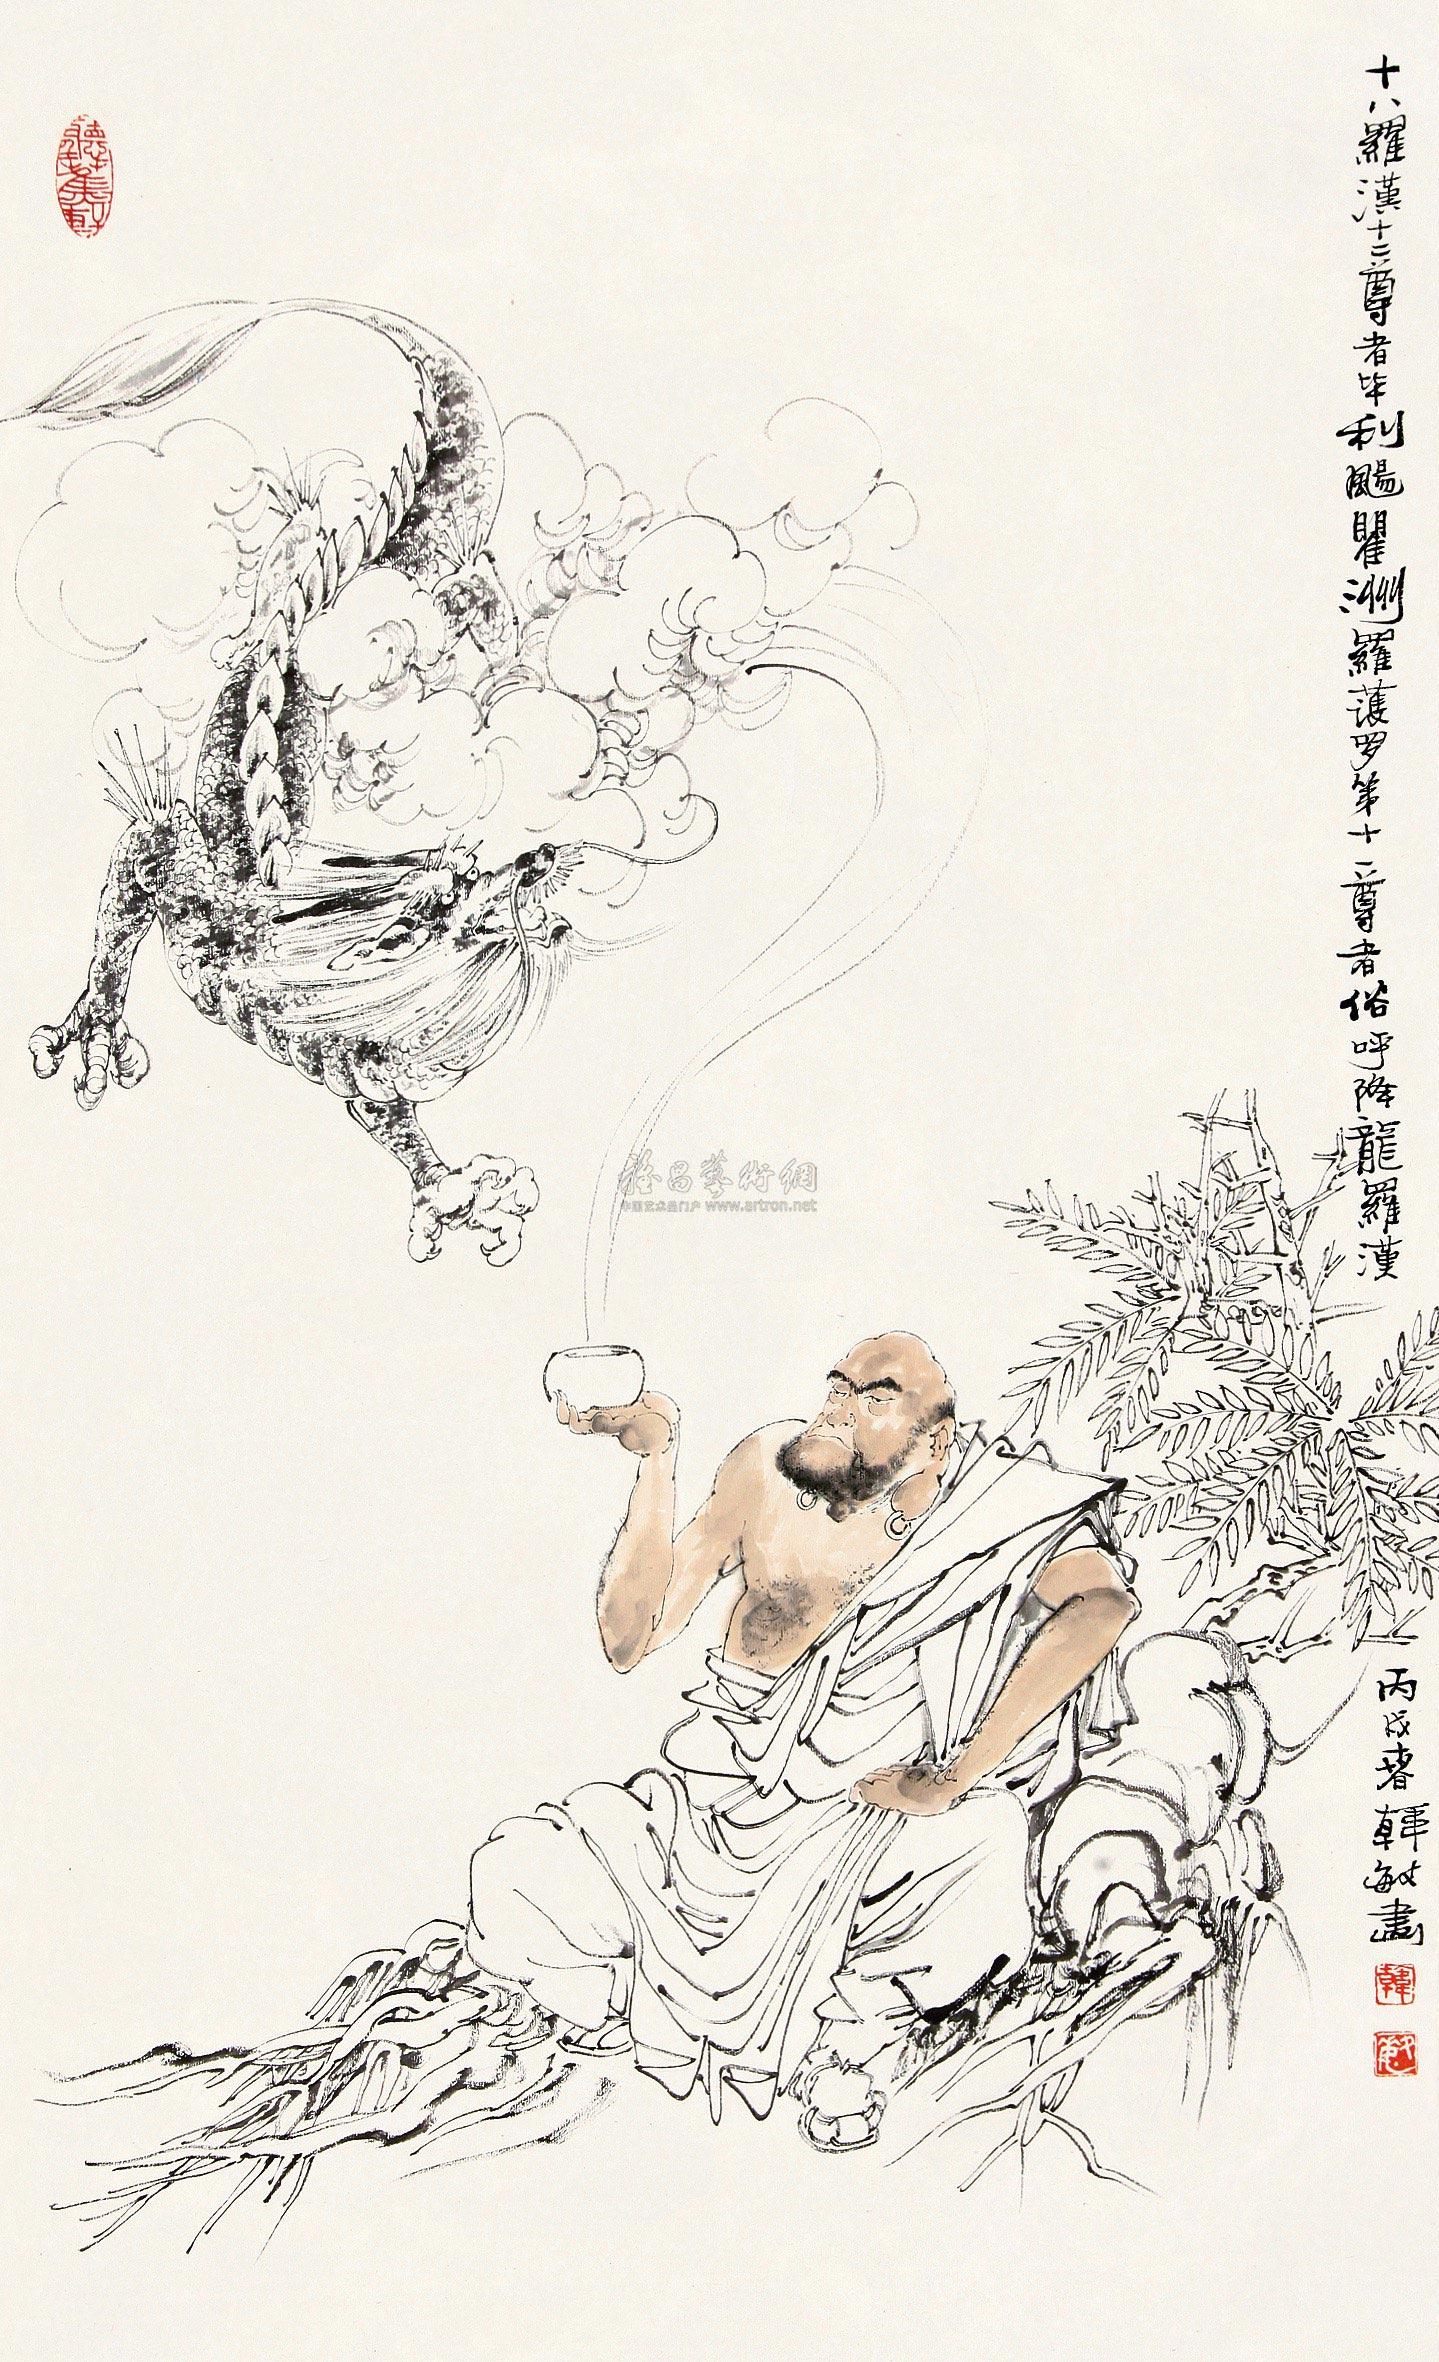 十八羅漢十二尊者毕利颺瞿洲羅蔖罗第十一尊者俗呼降龍羅漢
丙戌春韓敏畫
韓
敏
聽蕉軒
雅昌藝術網
中国艺术品门户 www.artron.net